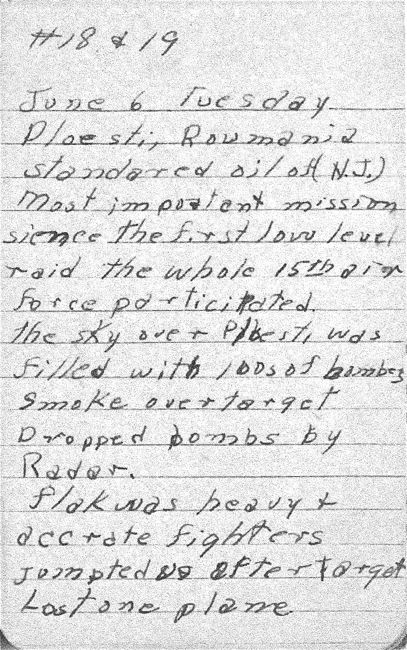 #18 & 19
June 6 Tuesday
Ploesti, Roumania
standared oil of (N.J.)
Most impoetent mission
sience the first low level
raid the whole 15th air
force particitated.
the sky over Ploesti, was
filled with 100s of bombes
smoke over target
Dropped bombs by
Radar.
flak was heavy +
accrate fighters
jumpted us after target
Lost one plane